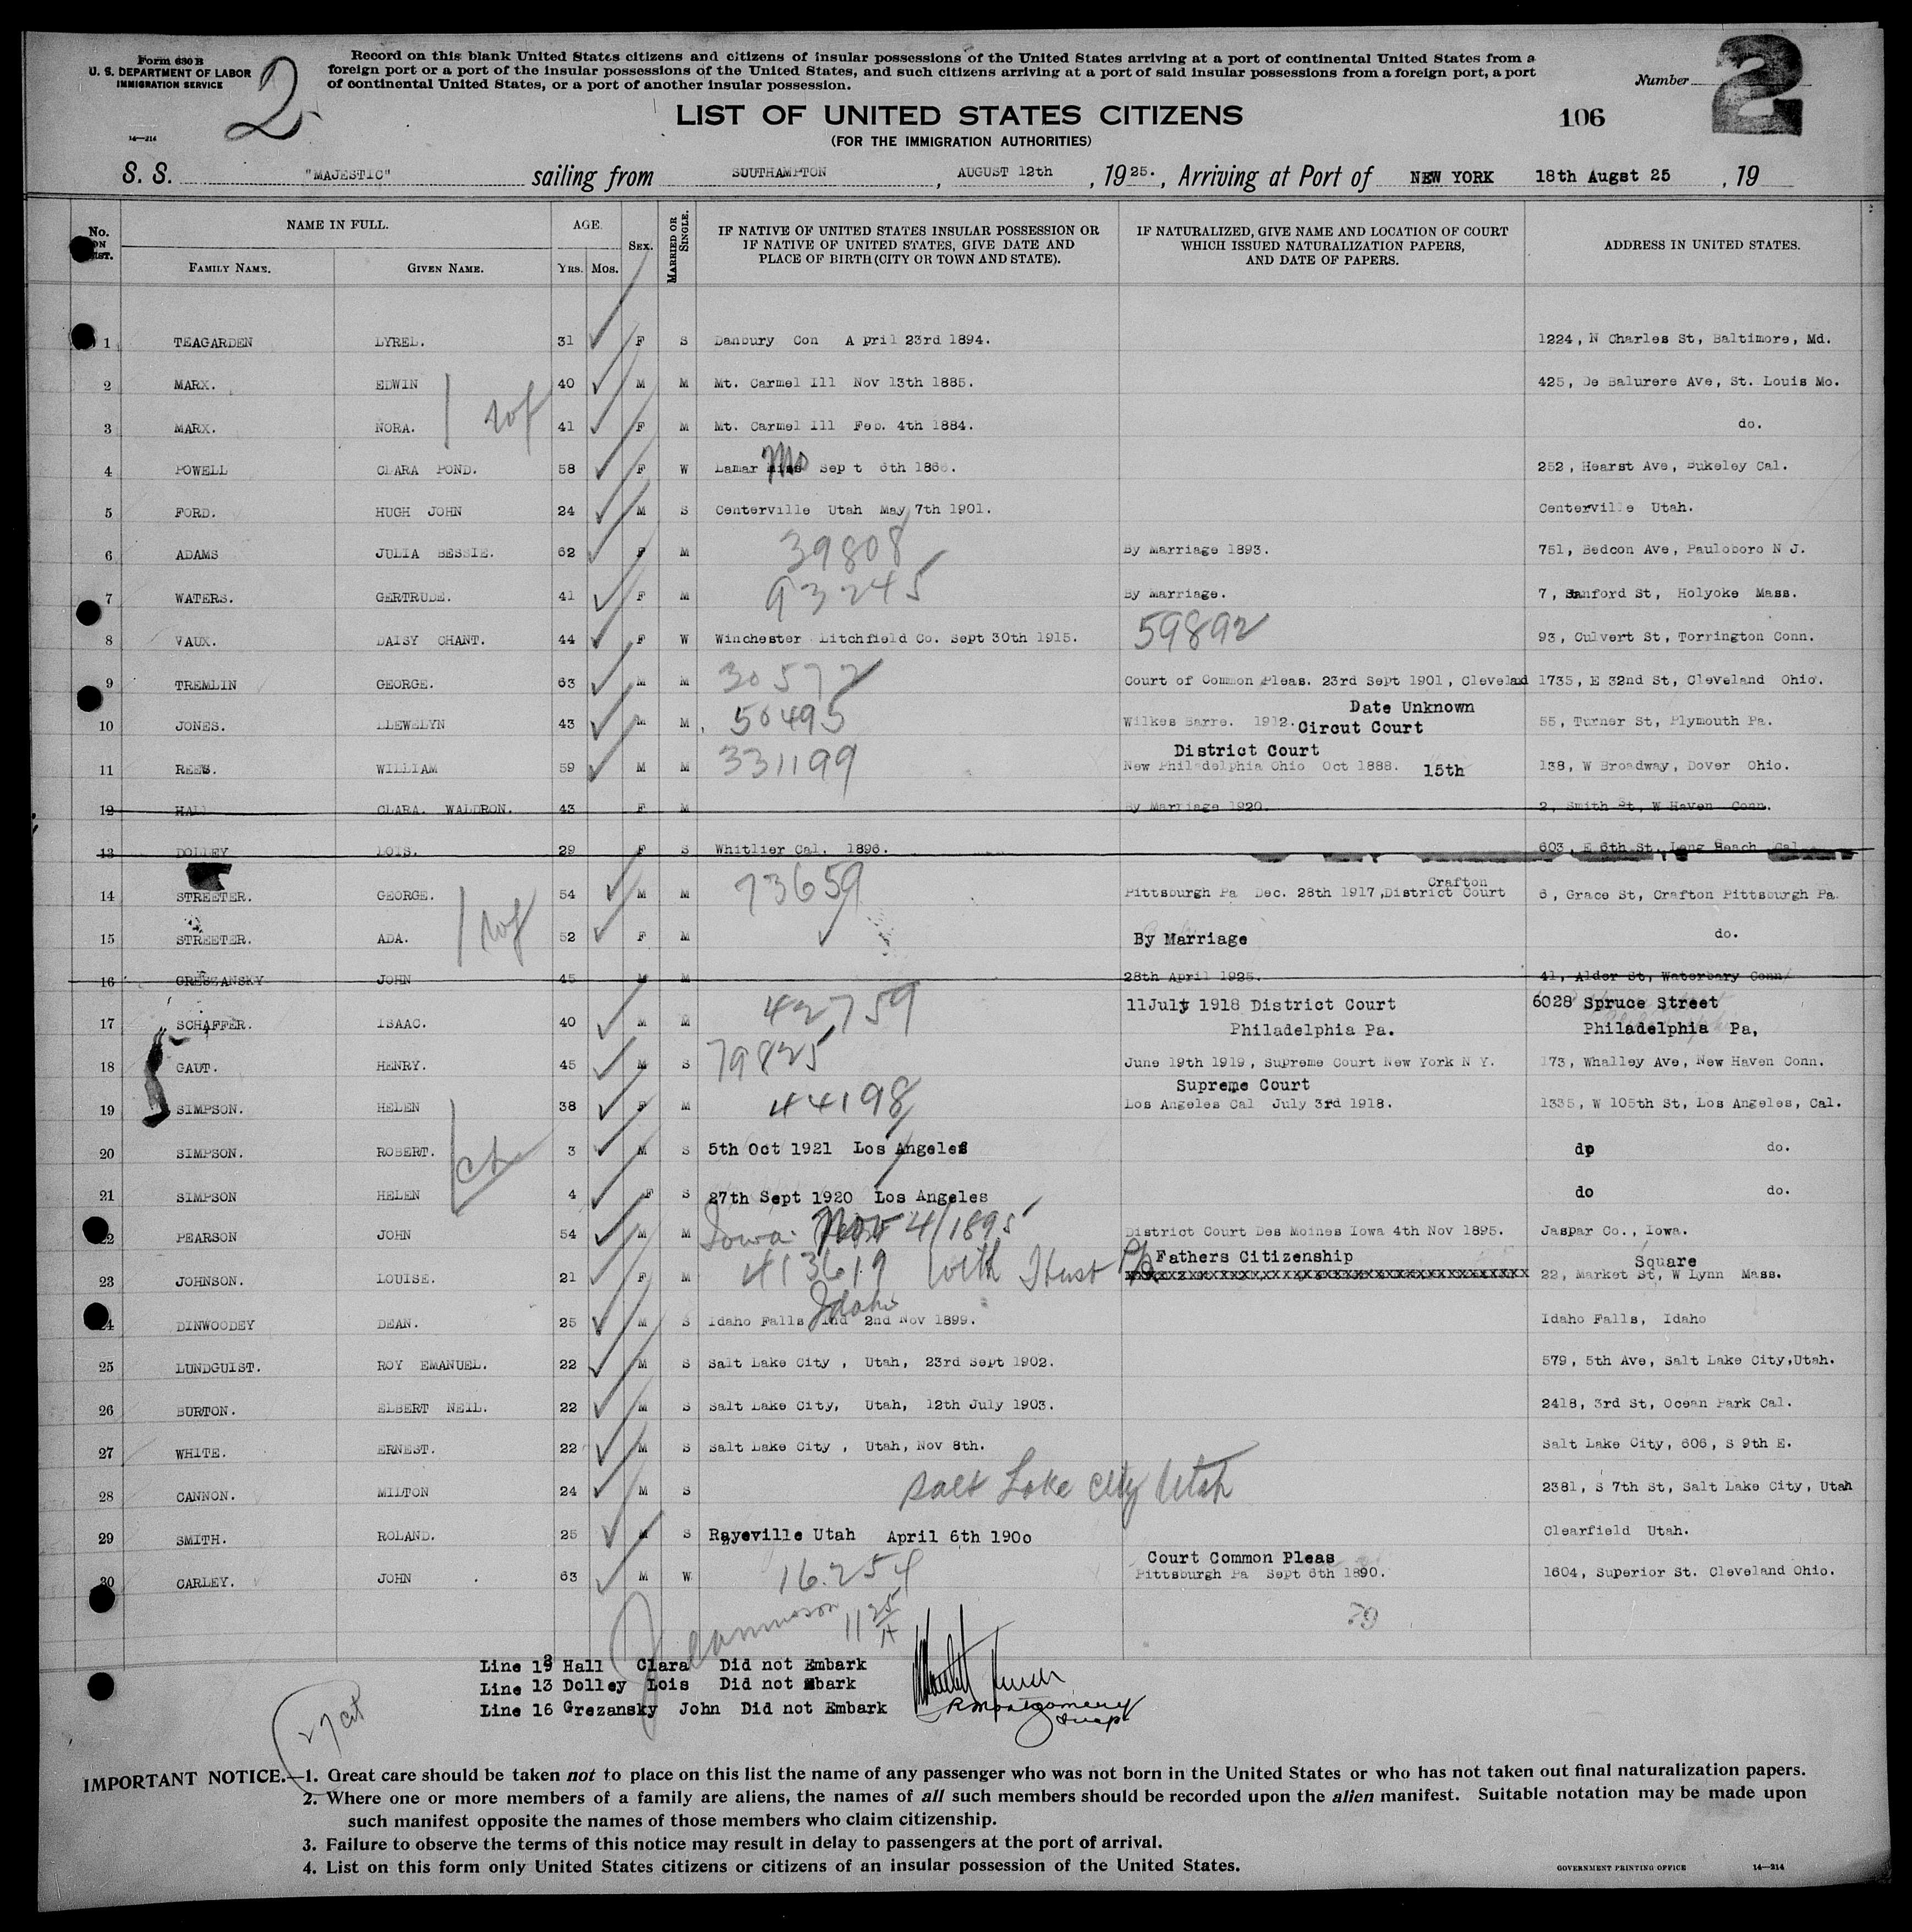 Form 630 B
U. S. DEPARTMENT OF LABOR
IMMIGRATION SERVICE
14—214
2
Record on this blank United States citizens and citizens of insular possessions of the United States arriving at a port of continental United States from a
foreign port or a port of the insular possessions of the United States, and such citizens arriving at a port of said insular possessions from a foreign port, a port
of continental United States, or a port of another insular possession.
Number 2
LIST OF UNITED STATES CITIZENS
106
(FOR THE IMMIGRATION AUTHORITIES)
S. S. "MAJESTIC" sailing from SOUTHAMPTON, AUGUST 12th, 1925., Arriving at Port of NEW YORK 18th Augst 25, 19
No. ON LIST.
NAME IN FULL.
FAMILY NAME. GIVEN NAME.
AGE.
YRS. MOS.
SEX.
MARRIED OR SINGLE.
IF NATIVE OF UNITED STATES INSULAR POSSESSION OR
IF NATIVE OF UNITED STATES, GIVE DATE AND
PLACE OF BIRTH (CITY OR TOWN AND STATE).
IF NATURALIZED, GIVE NAME AND LOCATION OF COURT
WHICH ISSUED NATURALIZATION PAPERS,
AND DATE OF PAPERS.
ADDRESS IN UNITED STATES.
1 TEAGARDEN LYREL. 31 F S Danbury Con A pril 23rd 1894. 1224, N Charles St, Baltimore, Md.
2 MARX. EDWIN 40 M M Mt. Carmel Ill Nov 13th 1885. 425, De Balurere Ave, St. Louis Mo.
3 MARX. NORA. 41 F M Mt. Carmel Ill Feb. 4th 1884. do.
4 POWELL CLARA POND. 58 F W Lamar Mo Sep t 6th 1866. 252, Hearst Ave, Bukeley Cal.
5 FORD. HUGH JOHN 24 M S Centerville Utah May 7th 1901. Centerville Utah.
6 ADAMS JULIA BESSIE. 62 F M 39808 By Marriage 1893. 751, Bedcon Ave, Pauloboro N J.
7 WATERS. GERTRUDE. 41 F M 93245 By Marriage. 7, Sanford St, Holyoke Mass.
8 VAUX. DAISY CHANT. 44 F W Winchester Litchfield Co. Sept 30th 1915. 59892 93, Culvert St, Torrington Conn.
9 TREMLIN GEORGE. 63 M M 30572 Court of Common Pleas. 23rd Sept 1901, Clevelad 1735, E 32nd St, Cleveland Ohio.
Date Unknown
10 JONES. LLEWELYN 43 M M 50495 Wilkes Barre. 1912. Circut Court 55, Turner St, Plymouth Pa.
District Court
11 REES. WILLIAM 59 M M 331199 New Philadelphia Ohio Oct 1888. 15th 138, W Broadway, Dover Ohio.
12 HALL CLARA. WALDRON. 43 F M By Marriage 1920. 2, Smith St, W Haven Conn.
13 DOLLEY LOIS. 29 F S Whitlier Cal. 1896. 603, E 6th St, Long Beach Cal
Crafton
14 STREETER. GEORGE. 54 M M 73659 Pittsburgh Pa Dec. 28th 1917, District Court 6, Grace St, Crafton Pittsburgh Pa.
15 STREETER. ADA. 52 F M By Marriage do.
16 GREZANSKY JOHN 45 M M 28th April 1925. 41, Aldor St, Waterbary Conn
11July 1918 District Court 6028 Spruce Street
17 SCHAFFER. ISAAC. 40 M M 42759 Philadelphia Pa. Philadelphia Pa,
18 GAUT. HENRY. 45 M S 79825 June 19th 1919, Supreme Court New York N Y. 173, Whalley Ave, New Haven Conn.
Supreme Court
19 SIMPSON. HELEN 38 F M 44198 Los Angeles Cal July 3rd 1918. 1335, W 105th St, Los Angeles, Cal.
20 SIMPSON. ROBERT. 3 M S 5th Oct 1921 Los Angeles do do.
21 SIMPSON HELEN 4 F S 27th Sept 1920 Los Angeles do do.
22 PEARSON JOHN 54 M M Iowa Nov 4/1895 District Court Des Moines Iowa 4th Nov 1895. Jaspar Co., Iowa.
Fathers Citizenship Square
23 JOHNSON. LOUISE. 21 F M 413619 With Hust 22, Market St, W Lynn Mass.
Idaho
24 DINWOODEY DEAN. 25 M S Idaho Falls Ind 2nd Nov 1899. Idaho Falls, Idaho
25 LUNDGUIST. ROY EMANUEL. 22 M S Salt Lake City , Utah, 23rd Sept 1902. 579, 5th Ave, Salt Lake City,Utah.
26 BURTON. ELBERT NEIL. 22 M S Salt Lake City, Utah, 12th July 1903. 2418, 3rd St, Ocean Park Cal.
27 WHITE. ERNEST. 22 M S Salt Lake City , Utah, Nov 8th. Salt Lake City, 606, S 9th E.
28 CANNON. MILTON 24 M S Salt Lake City Utah 2381, S 7th St, Salt Lake City, Utah
29 SMITH. ROLAND. 25 M S Rayeville Utah April 6th 1900 Clearfield Utah.
Court Common Pleas
30 CARLEY. JOHN 63 M W 16.254 Pittsburgh Pa Sept 6th 1890. 1604, Superior St. Cleveland Ohio.
Line 12 Hall Clara Did not Embark
Line 13 Dolley Lois Did not Embark
Line 16 Grezansky John Did not Embark
R Montgomery
27 cit
IMPORTANT NOTICE.—1. Great care should be taken not to place on this list the name of any passenger who was not born in the United States or who has not taken out final naturalization papers.
2. Where one or more members of a family are aliens, the names of all such members should be recorded upon the alien manifest. Suitable notation may be made upon
such manifest opposite the names of those members who claim citizenship.
3. Failure to observe the terms of this notice may result in delay to passengers at the port of arrival.
4. List on this form only United States citizens or citizens of an insular possession of the United States.
GOVERNMENT PRINTING OFFICE 14—214